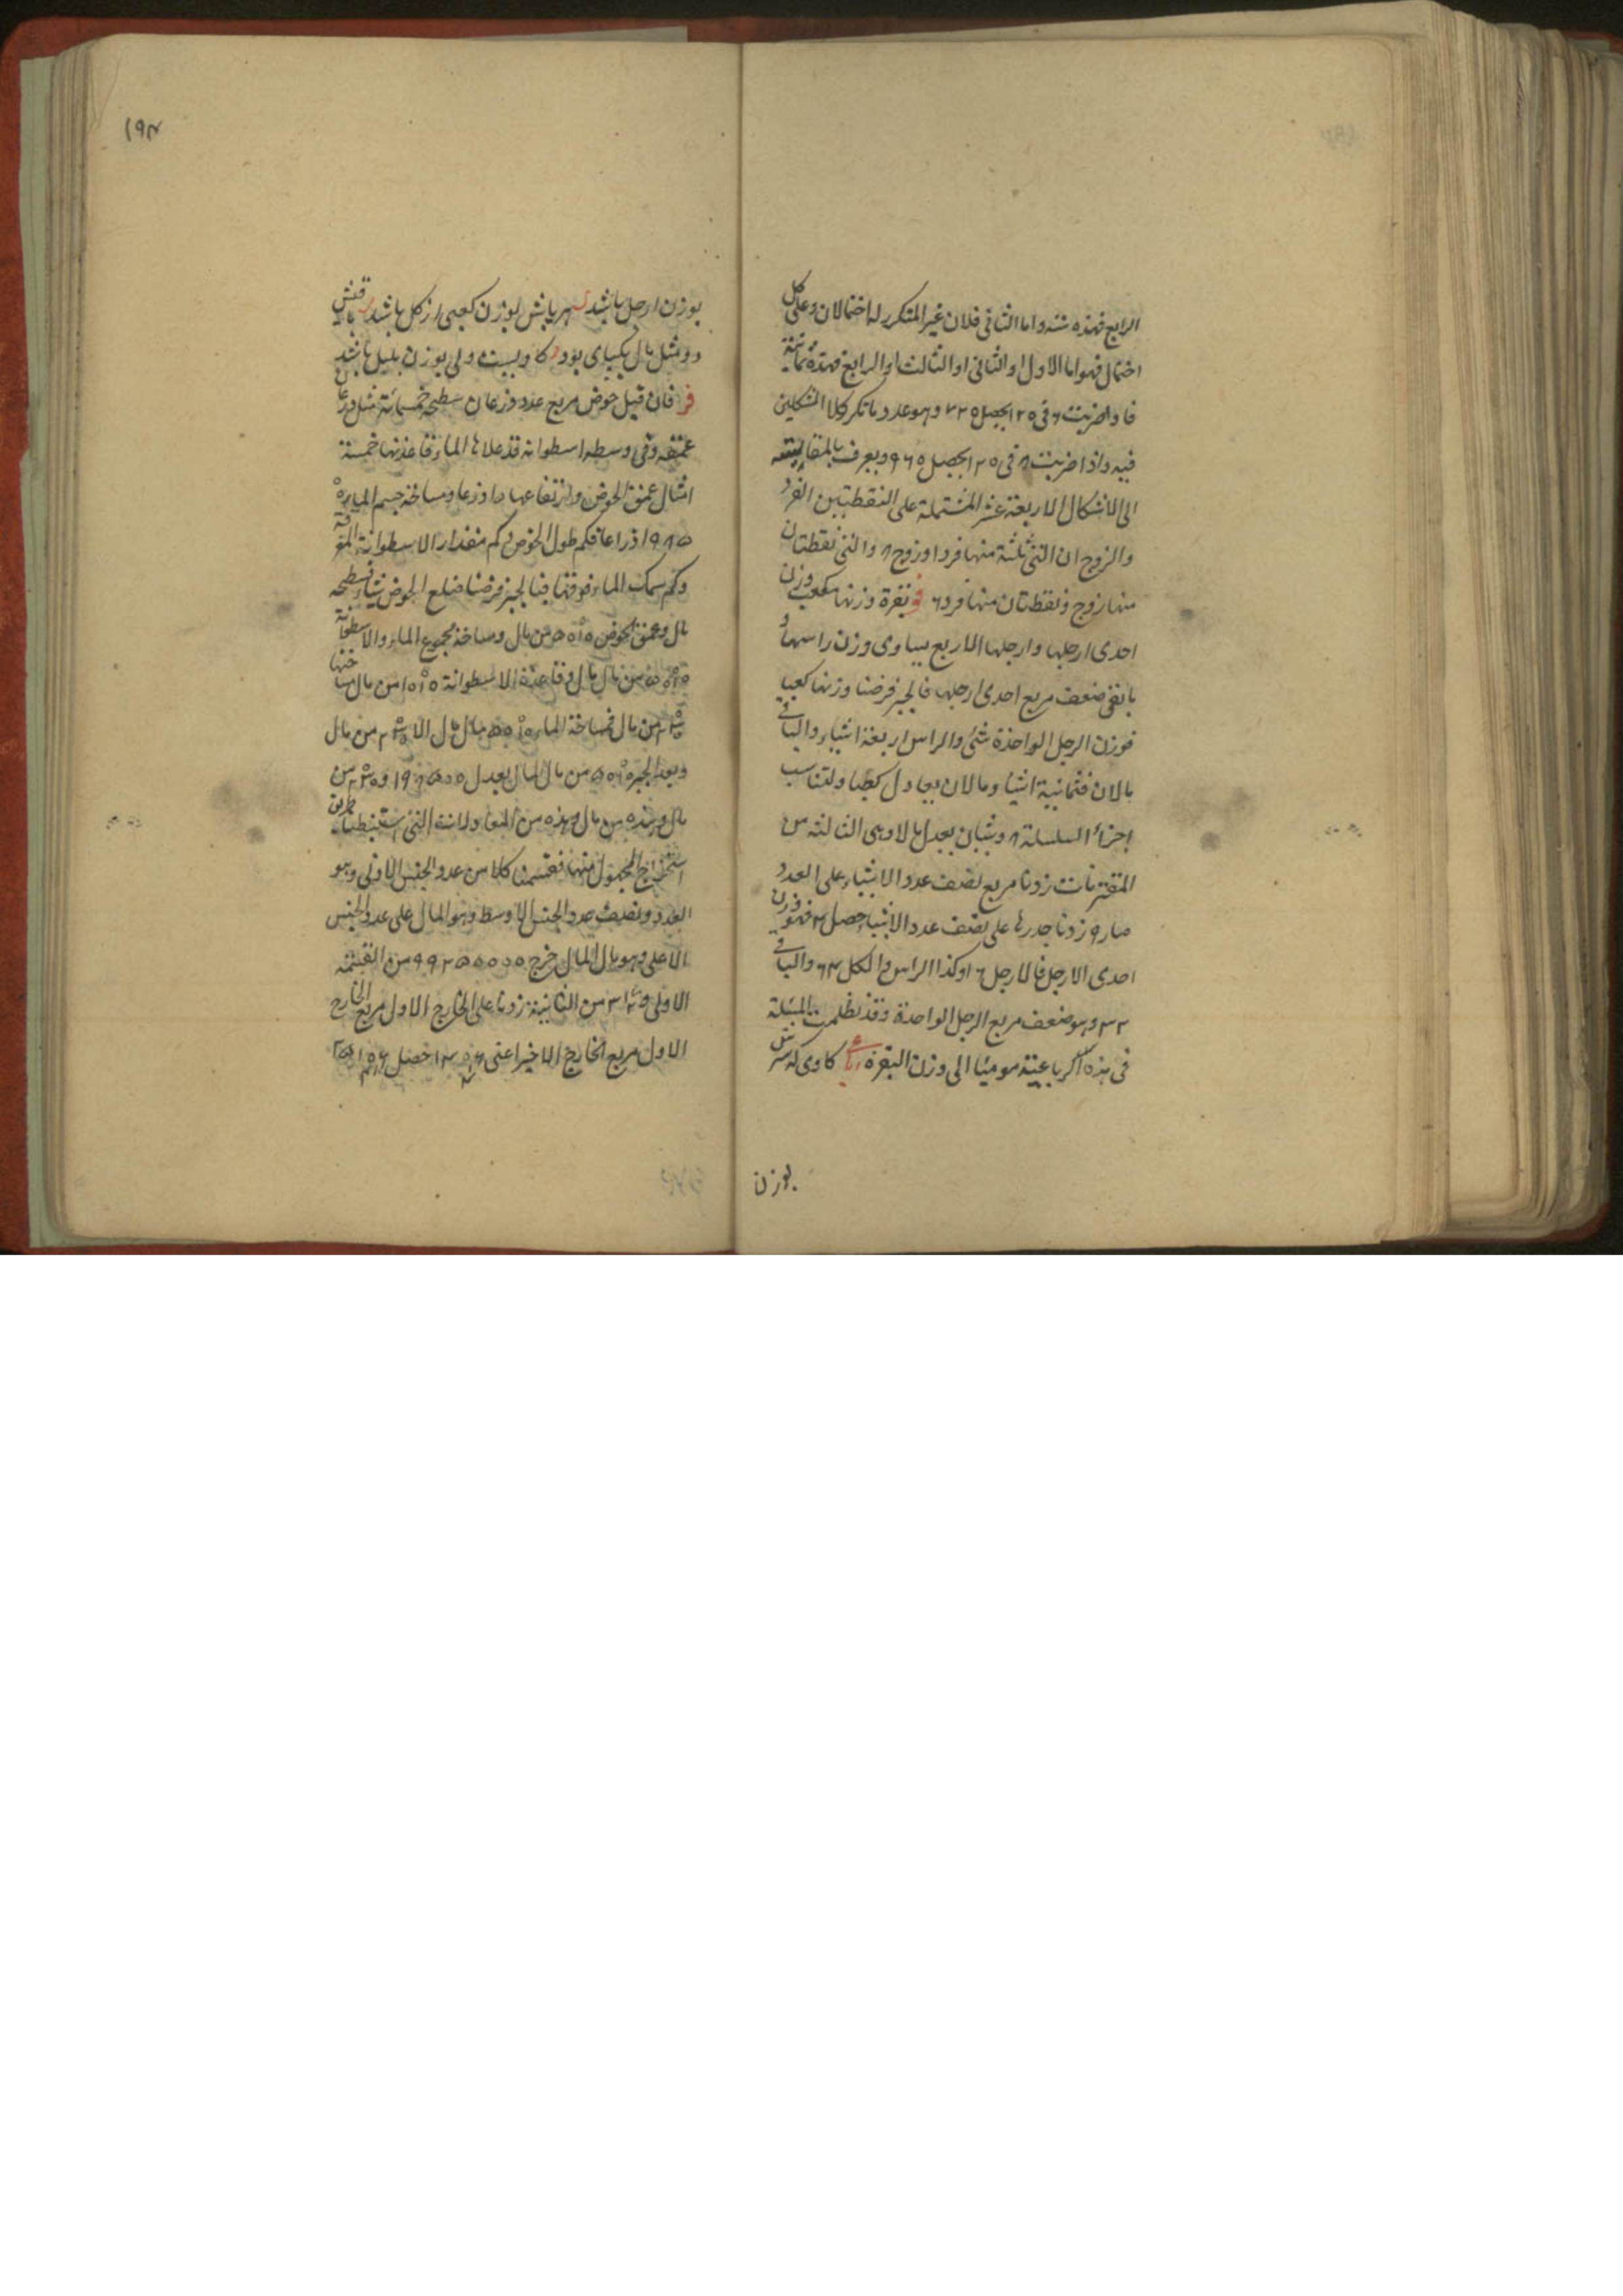 الرابع فهذه ستة واما الثانی فلان غیر المتکرر له احتمالان وعلی کل
احتمال فهو اما الاول او الثانی او الثالث او الرابع فهذه ثمانیة
فاذا ضربت ٦ فی ١٢٥ یحصل ٧٢٥ وهو عدد ما تکرر کلا الشکلین
فیه واذا ضربت ٨ فی ١٢٥ یحصل ٩٦٥ ویعرف بالمقایسة
الی الاشکال الاربعة عشر المشتملة علی النقطتین الفرد
والزوج ان التی ثلثة منها فرد او زوج ٨ والتی نقطتان
منها زوج ونقطتان منها فرد ٦ بقرة وزنها مکعب وزن
احدی ارجلها وارجلها الاربع یساوی وزن راسها و
ما بقی ضعف مربع احدی ارجلها فالجبر فرضنا وزنها کعبا
فوزن الرجل الواحدة شئ والراس اربعة اشیاء والباقی
مالان فثمانیة اشیا ومالان یعادل کعبا ولتناسب
اجزاء السلسلة ٨ وشیان یعدل مالا وهی الثالثة من
المقترنات زدنا مربع نصف عدد الاشیاء علی العدد
صار ٩ زدنا جذرها علی نصف عدد الاشیاء حصل ٤ فهو وزن
احدی الارجل فالارجل ١٦ وکذا الراس والکل ٦٤ والباقی
٣٢ وهو ضعف مربع الرجل الواحدة وقد نظمت المسئلة
فی هذه الرباعیة مومیا الی وزن البقرة رباعی کاوی که سرش
بوزن
١٩٤
بوزن ارجل باشد هر پایش بوزن کعبی از کل باشد باقیش
دو مثل مال یکپای بود کاویست ولی بوزن بلبل باشد
فان قیل حوض مربع عدد ذرعان سطحه خمسمائة مثل ذرعان
عمقه وفی وسطه اسطوانة قد علاها الماء قاعدتها خمسة
امثال عمق الحوض وارتفاعها ذراعا ومساحة جسم الماء
ذراعا فکم طول الحوض وکم مقدار الاسطوانة
وکم سمک الماء فوقها فبالجبر فرضنا ضلع الحوض شیئا فسطحه
مال وعمق الحوض من مال ومساحة مجموع الماء والاسطوانة
من مال مال وقاعدة الاسطوانة من مال مساحتها
من مال فمساحة الماء مال مال الا من مال
وبعد الجبر من مال المال یعدل
مال وهذه من المعادلات التی استنبطنا طریق
استخراج المجهول منها فقسمنا کلا من عدد الجنس الادنی وهو
العدد ونصف عدد الجنس الاوسط وهو المال علی عدد الجنس
الاعلی وهو مال المال خرج ٩٩٢٥٥٥٥٥ من القسمة
الاولی من الثانیة زدنا علی الخارج الاول مربع الخارج
الاول مربع الخارج الاخیر اعنی حصل